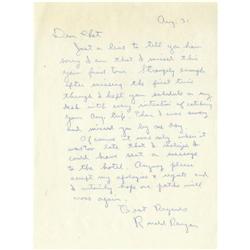 Aug. 31
Dear Chet
Just a line to tell you how
sorry I am that I missed this
year's final tour. Strangely enough
after missing the first time
through I kept your schedule on my
desk with every intention of catching
your Aug. trip. Then I was away
and missed you by one day.
Of course it was only when it
was too late that I
could have sent a message
to the hotel. Anyway please
accept my apologies & regrets and
I certainly hope our paths will
cross again.
Best Regards
Ronald Reagan